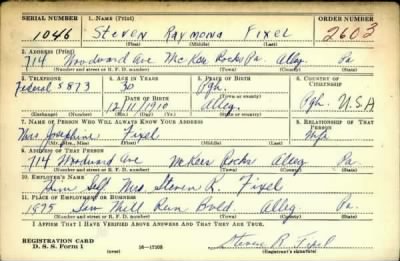 SERIAL NUMBER 1. NAME (Print) ORDER NUMBER
1046 Steven Raymond Fixel 2603
(First) (Middle) (Last)
2. ADDRESS (Print)
714 Woodward Ave McKees Rocks Pa. Alleg. Pa.
(Number and street or R. F. D. number) (Town) (County) (State)
3. TELEPHONE 4. AGE IN YEARS 5. PLACE OF BIRTH 6. COUNTRY OF CITIZENSHIP
Federal 5873 30 Pgh.
DATE OF BIRTH (Town or county)
12/11/1910 Alleg. Pgh. U.S.A
(Exchange) (Number) (Mo.) (Day) (Yr.) (State or country)
7. NAME OF PERSON WHO WILL ALWAYS KNOW YOUR ADDRESS 8. RELATIONSHIP OF THAT PERSON
Mrs. Josephine Fixel Wife
(Mr., Mrs., Miss) (First) (Middle) (Last)
9. ADDRESS OF THAT PERSON
714 Woodward Ave McKees Rocks Alleg Pa.
(Number and street or R. F. D. number) (Town) (County) (State)
10. EMPLOYER'S NAME
Him Self Mrs. Steven R. Fixel
11. PLACE OF EMPLOYMENT OR BUSINESS
1875 Saw Mill Run Bvld. Alleg. Pa.
(Number and street or R. F. D. number) (Town) (County) (State)
I AFFIRM THAT I HAVE VERIFIED ABOVE ANSWERS AND THAT THEY ARE TRUE.
REGISTRATION CARD
D. S. S. Form 1 16—17105 Steven R. Fixel
(Registrant's signature)